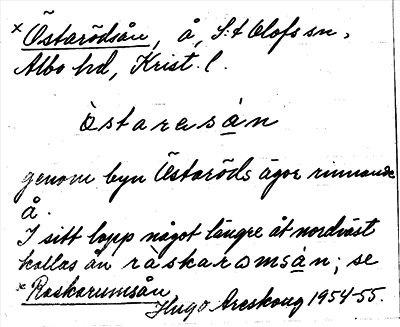 × Östarödsån, å, S:t Olofs sn,
Albo hd, Krist. l.
östaresån
genom byn Östaröds ägor rinnande
å.
I sitt lopp något längre åt nordväst
kallas ån råskarømsån; se
× Raskarumsån
Hugo Areskoug 1954-55.